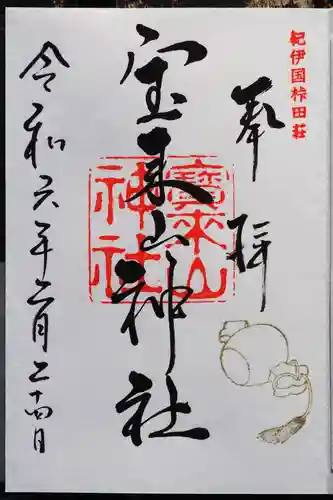 紀伊国桛田荘
奉拝
宝来山神社
寳来山
神社
令和六年二月二十四日